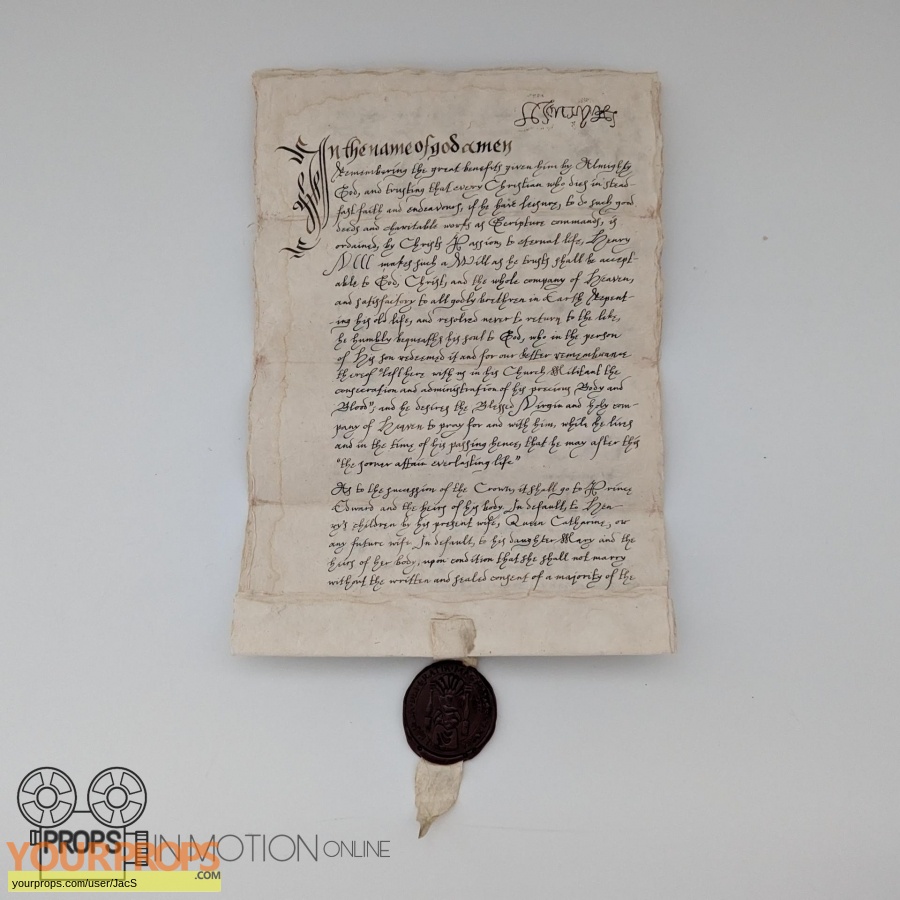 In the name of god amen
Remembering the great benefits given him by Almighty
God, and trusting that every Christian who dies in stead-
fast faith and endeavours, if he have leisure, to do such good
deeds and charitable works as Scripture commands, is
ordained, by Christs Passion, to eternal life, Henry
makes such a Will as he trusts shall be accept-
able to God, Christ, and the whole company of Heaven,
and satisfactory to all godly brethren in Earth Repent-
ing his old life, and resolved never to return to the like,
he humbly bequeaths his soul to God, who in the person
of His son redeemed it and for our better remembrance
thereof "left here with us in his Church Militant the
consecration and administration of his precious Body and
Blood", and he desires the Blessed Virgin and holy com-
pany of Heaven to pray for and with him, while he lives
and in the time of his passing hence, that he may after this
"the sooner attain everlasting life"
As to the succession of the Crown, it shall go to Prince
Edward and the heirs of his body. In default, to Hen-
ry's children by his present wife, Queen Catharine, or
any future wife. In default, to his daughter Mary and the
heirs of her body, upon condition that she shall not marry
without the written and sealed consent of a majority of the
PROPS IN MOTION ONLINE
YOURPROPS.COM
yourprops.com/user/JacS